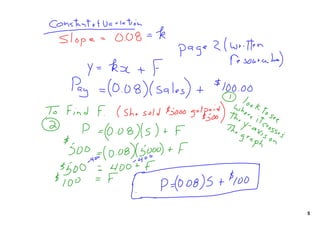 Constant of Variation
Slope = 0.08 = k
page 2 (written
resource b)
y = kx + F
Pay = (0.08)(sales) + $100.00
To Find F. (She sold $5000 got paid
$500)
① look to see
where it crosses
the y-axis on
the graph
② P = (0.08)(S) + F
$500 = (0.08)(5000) + F
$500 = 400 + F
-400 -400
$100 = F
P = (0.08)S + $100
5